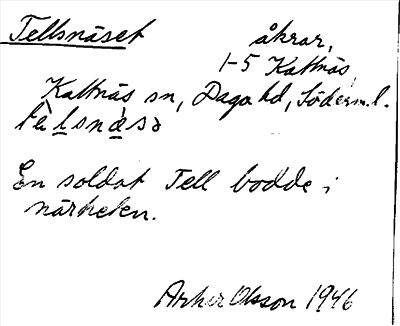 Tellsnäset åkrar,
1-5 Kattnäs,
Kattnäs sn, Daga hd, Söderm.l.
tèlsnäsə
En soldat Tell bodde i
närheten.
Olsson 1946